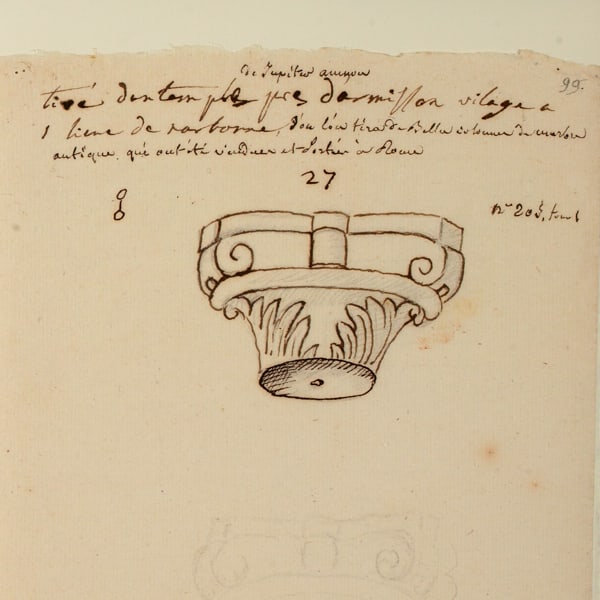 de Jupiter amon
99.
tiré dun temple pres darmissan vilage a
1 lieue de narbonne, d'ou l'on tira de Belles colonnes de marbre
antique, qui ont été vendues et portées à Rome
27
8
n° 203, tom 1